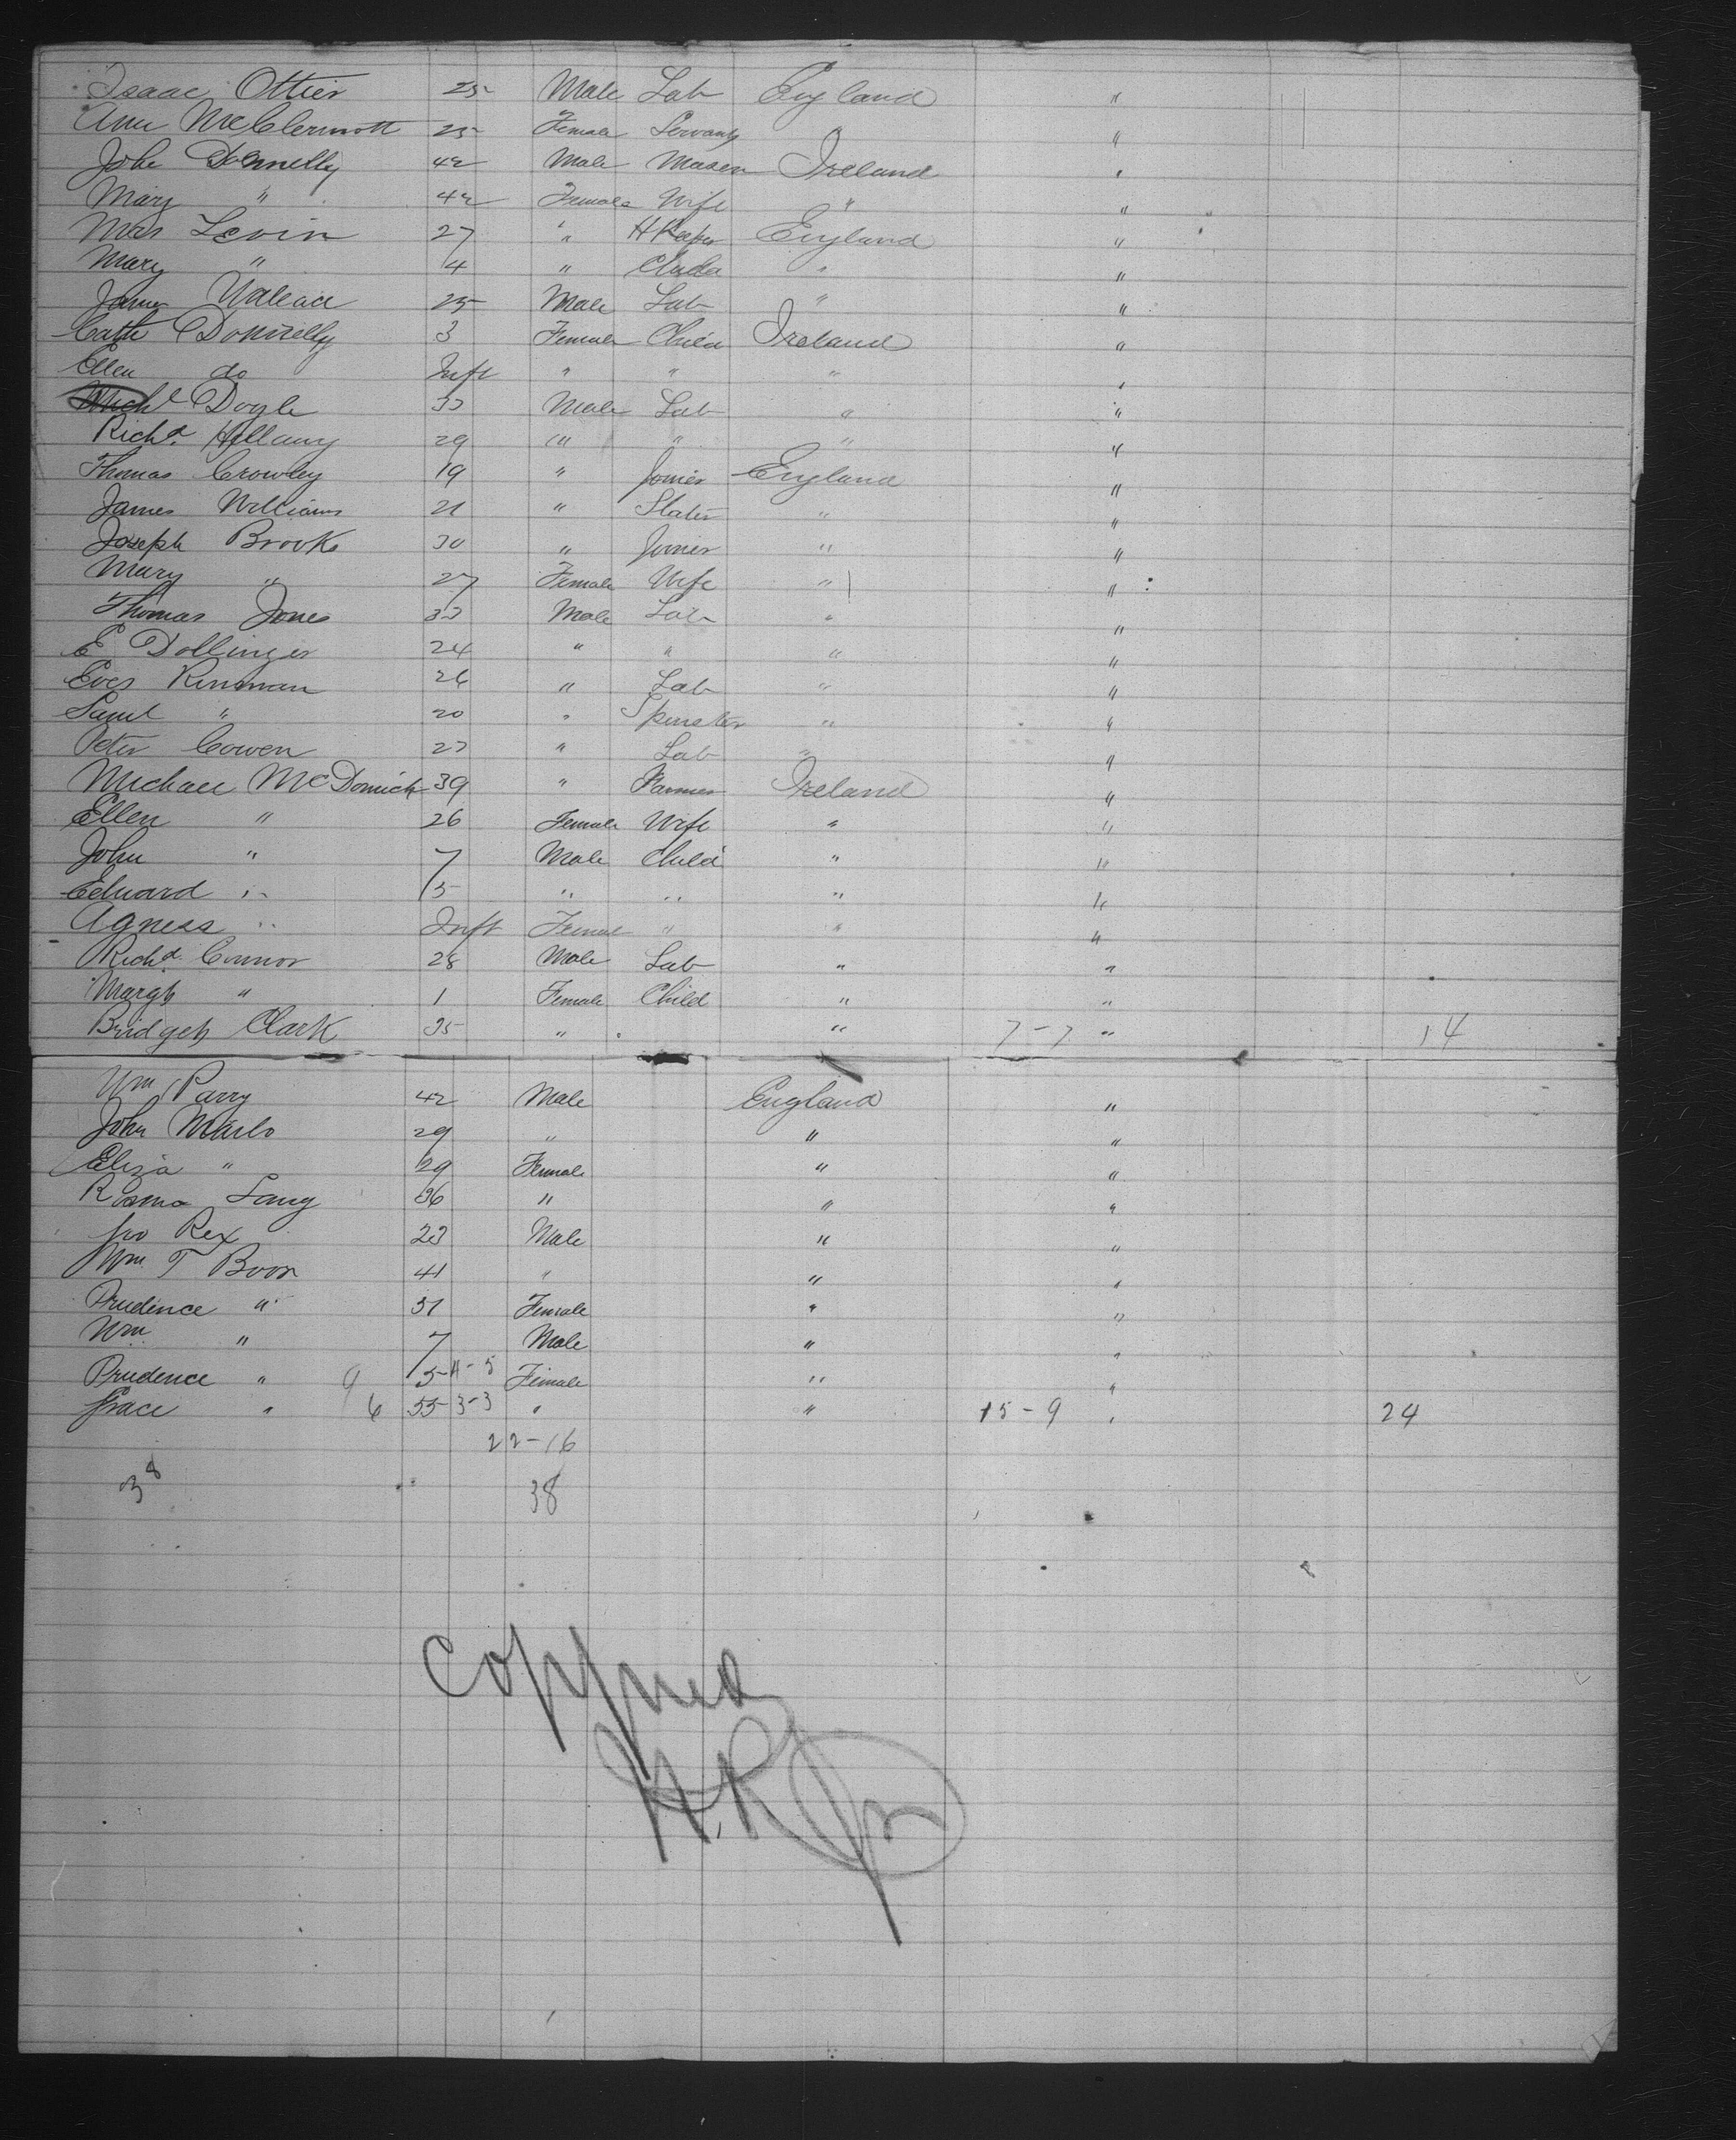 Isaac Ottier 25 Male Lab England "
Ann McClermott 25 Female Servant " "
John Donnelly 42 Male Mason Ireland "
Mary " 42 Female Wife " "
Mrs Levin 27 " HKeeper England "
Mary " 4 " Child " "
James Wallace 25 Male Lab " "
Cath Donnelly 3 Female Child Ireland "
Ellen do Inft " " " "
Michl Doyle 33 Male Lab " "
Richd 29 " " " "
Thomas Crowley 19 " Joiner England "
James Williams 21 " Slater " "
Joseph Brooks 30 " Joiner " "
Mary " 27 Female Wife " "
Thomas Jones 33 Male Lab " "
E Dollinger 24 " " " "
Eves Kinsman 26 " Lab " "
Saml " 20 " Spinster " "
Peter Cowen 23 " Lab " "
Michael McDomick 39 " Farmer Ireland "
Ellen " 26 Female Wife " "
John " 7 Male Child " "
Edward " 5 " " " "
Agness " Inft Female " " "
Richd Connor 28 Male Lab " "
Margt " 1 Female Child " "
Bridget Clark 35 " " 7-7 " 14
Wm Parry 42 Male England "
John Marlo 29 " " "
Eliza " 29 Female " "
Rosma Lang 36 " " "
Jno Rex 23 Male " "
Wm T Boon 41 " " "
Prudence " 37 Female " "
Wm " 7 Male " "
Prudence " 9 5 4-5 Female " "
Grace " 6 55 3-3 " " 15-9 " 24
22-16
38 38
Copyied
H.R.